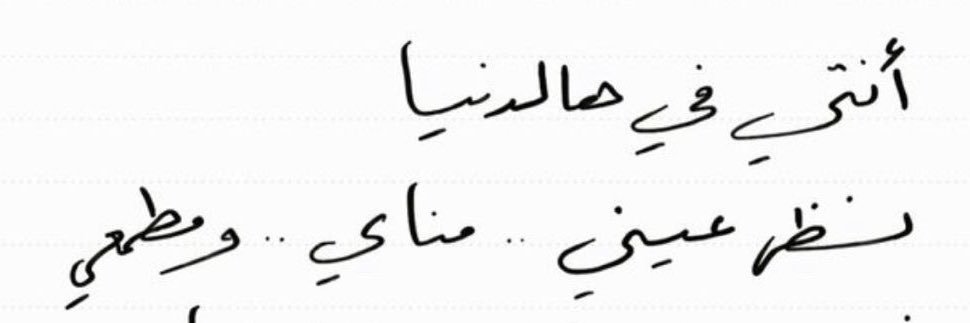 أنتي في هالدنيا
نظر عيني .. مناي .. ومطمعي